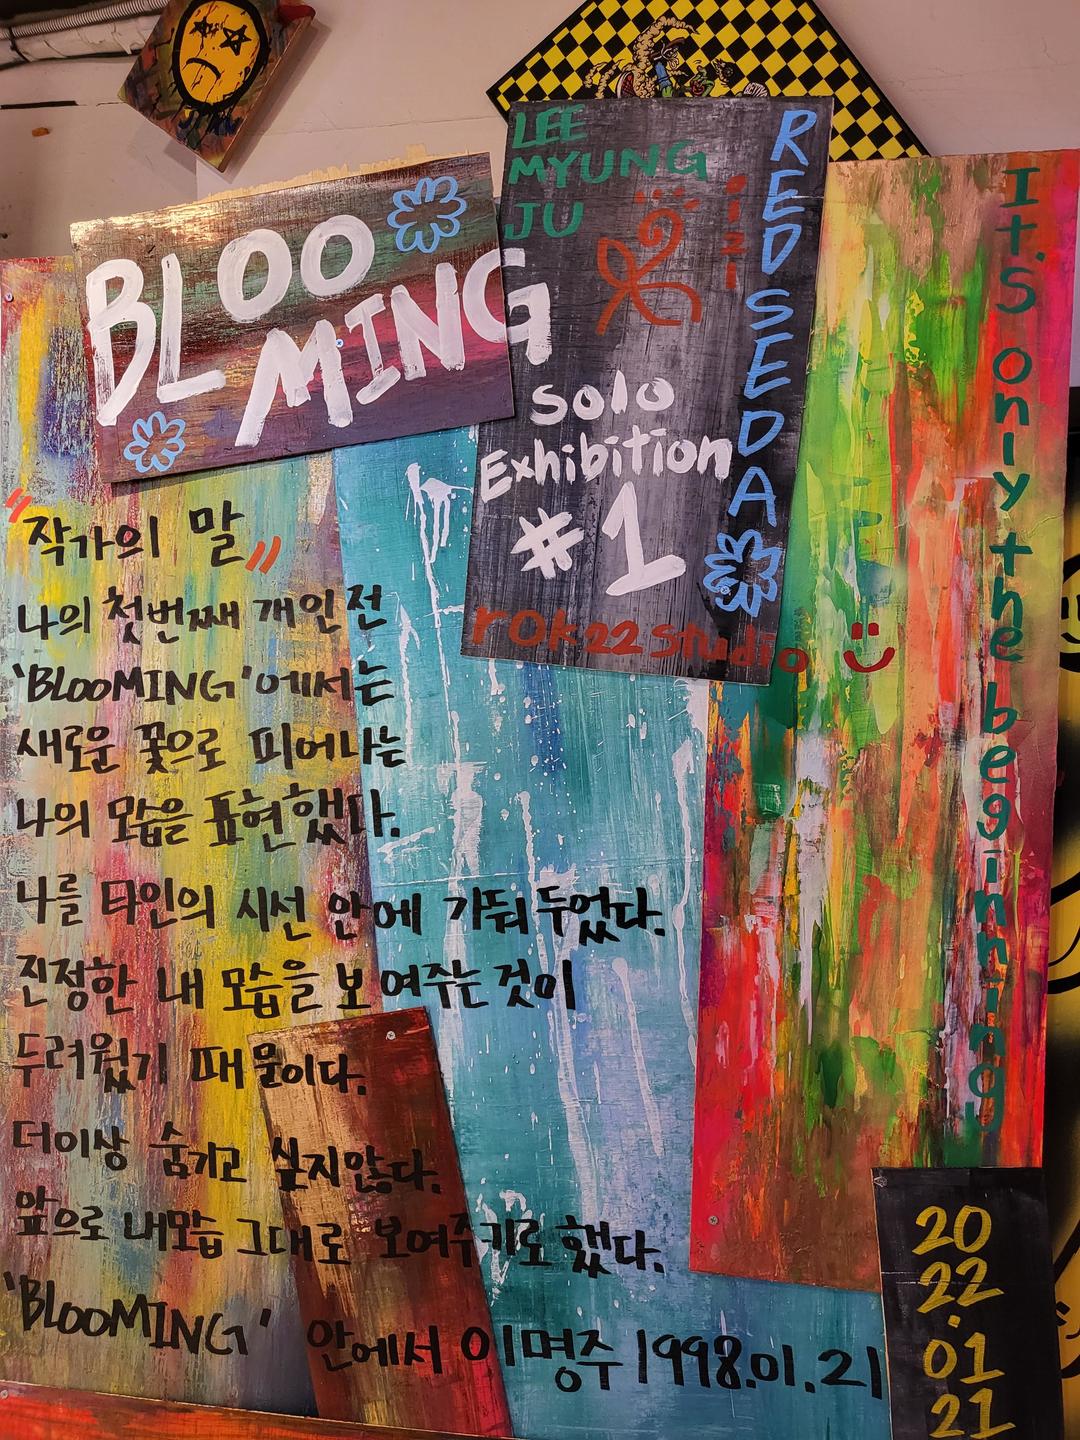 BLOO
MING
LEE
MYUNG
JU
0121
RED SEDA
solo
Exhibition
#1
rok22 studio
It's only the beginning
"작가의 말"
나의 첫번째 개인전
'BLOOMING'에서는
새로운 꽃으로 피어나는
나의 모습을 표현했다.
나를 타인의 시선 안에 가둬 두었다.
진정한 내 모습을 보여주는 것이
두려웠기 때문이다.
더이상 숨기고 싶지않다.
앞으로 내모습 그대로 보여주기로 했다.
'BLOOMING' 안에서 이명주 1998.01.21
20
22.
01
21